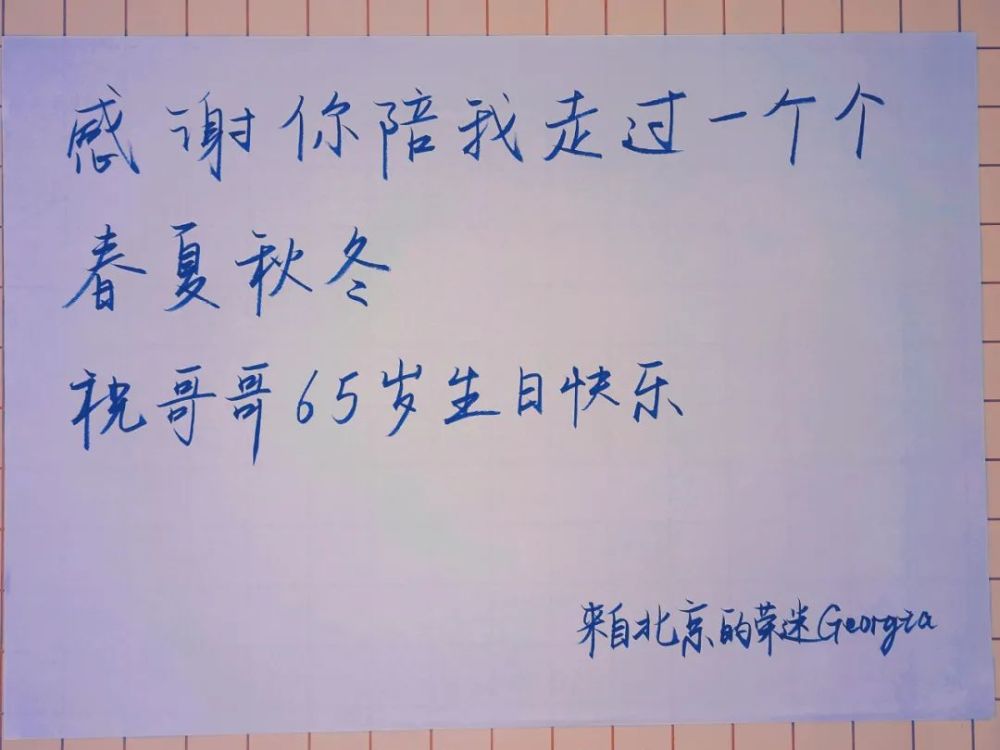 感谢你陪我走过一个个
春夏秋冬
祝哥哥65岁生日快乐
来自北京的荣迷Georgia